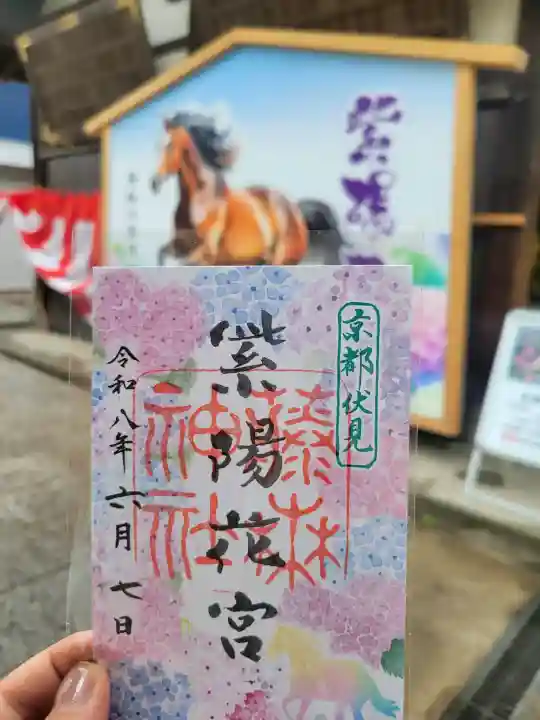 京都伏見
紫陽花宮
藤森
神社
令和八年六月七日
紫陽